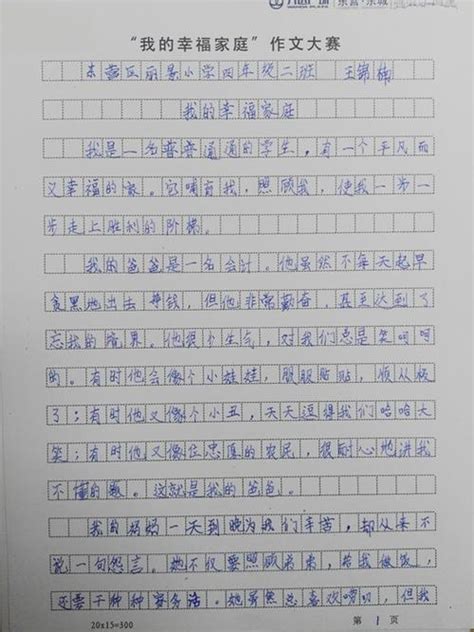 东营·东城
“我的幸福家庭”作文大赛
东营区丽景小学四年级二班 王锦楠
我的幸福家庭
我是一名普普通通的学生，有一个平凡而
又幸福的家。它哺育我，照顾我，使我一步一
步走上胜利的阶梯。
我的爸爸是一名会计。他虽然不每天起早
贪黑地出去挣钱，但他非常勤奋，甚至达到了
忘我的境界。他很个生气，对我们总是笑呵呵
的。有时他会像个小娃娃，服服贴贴，顺从极
了；有时他又像个小丑，天天逗得我们哈哈大
笑；有时他又像位忠厚的农民，很耐心地讲我
不懂的题。这就是我的爸爸。
我的妈妈一天到晚为我们辛苦，却从来不
说一句怨言。她不仅要照顾弟弟，给我做饭，
还要干种种家务活。她虽然总喜欢唠叨，但我
20x15=300
第 1 页